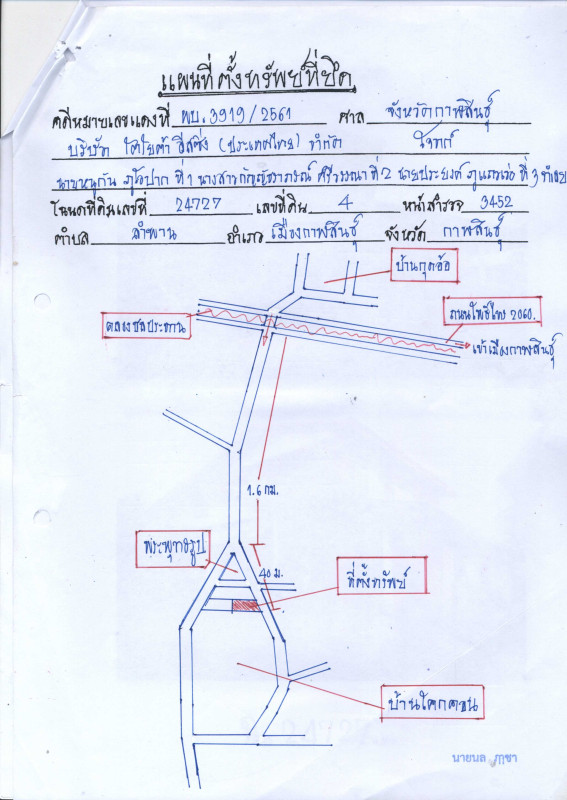 แผนที่ตั้งทรัพย์ที่ยึด
คดีหมายเลขแดงที่ ผบ.3919/2561 ศาล จังหวัดกาฬสินธุ์
บริษัท โตโยต้า ลีสซิ่ง (ประเทศไทย) จำกัด โจทก์
ที่ 1 นางสาวกัญญาภรณ์ ศรีวรรณา ที่ 2 นายประยงค์ ที่ 3 จำเลย
โฉนดที่ดินเลขที่ 24727 เลขที่ดิน 4 หน้าสำรวจ 3452
ตำบล ลำพาน อำเภอ เมืองกาฬสินธุ์ จังหวัด กาฬสินธุ์
บ้านกุดอ้อ
คลองชลประทาน
ถนนโพธิ์ไทร 2040.
เข้าเมืองกาฬสินธุ์
1.6 กม.
พระพุทธรูป
40 ม.
ที่ตั้งทรัพย์
บ้านโคกคอน
นายนล ภูชา